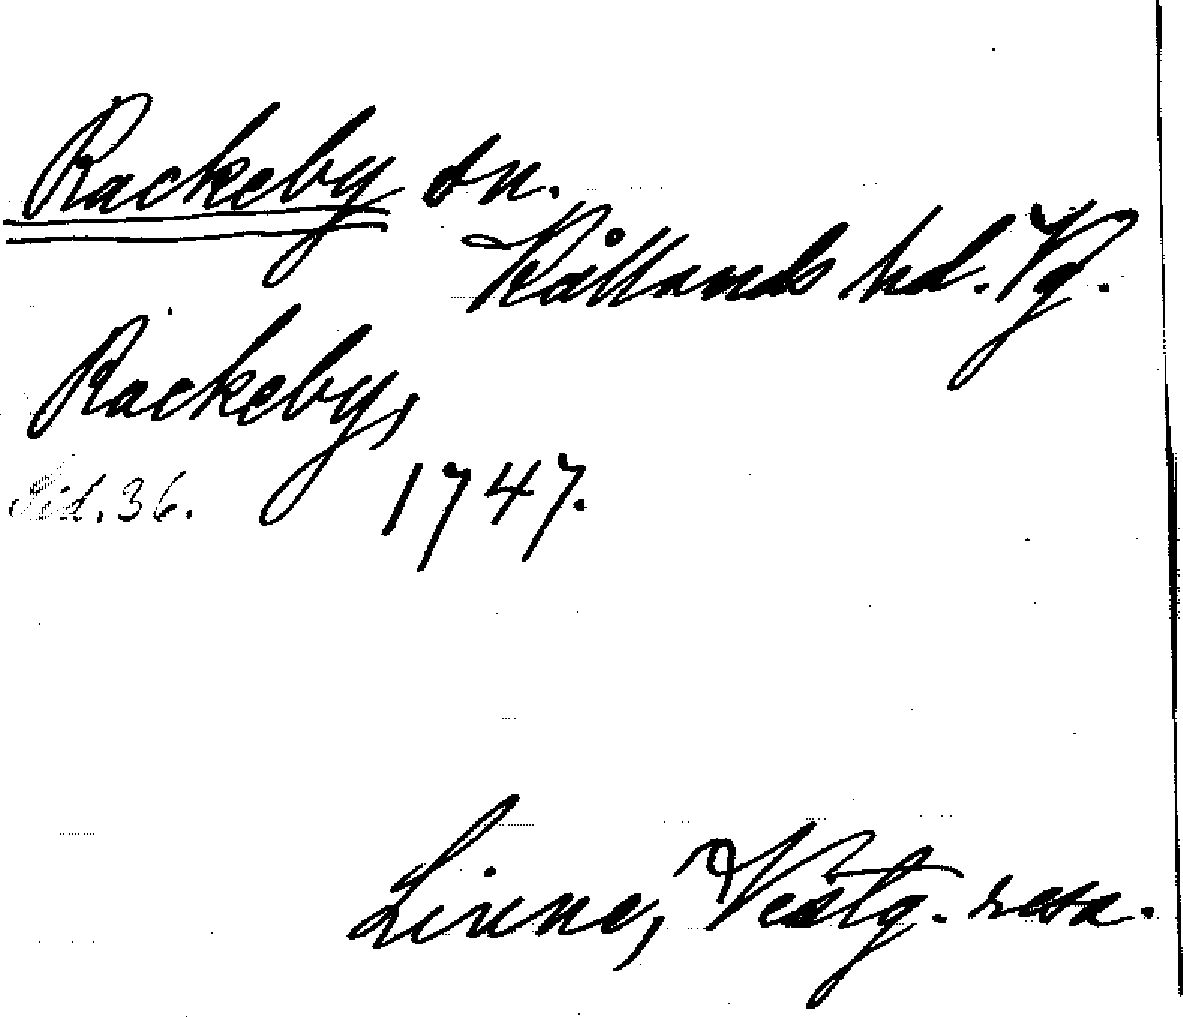 Rackeby sn.
Kållands hd. Vg.
Rackeby,
Sid. 36.
1747.
Linne, Vestg. resa.